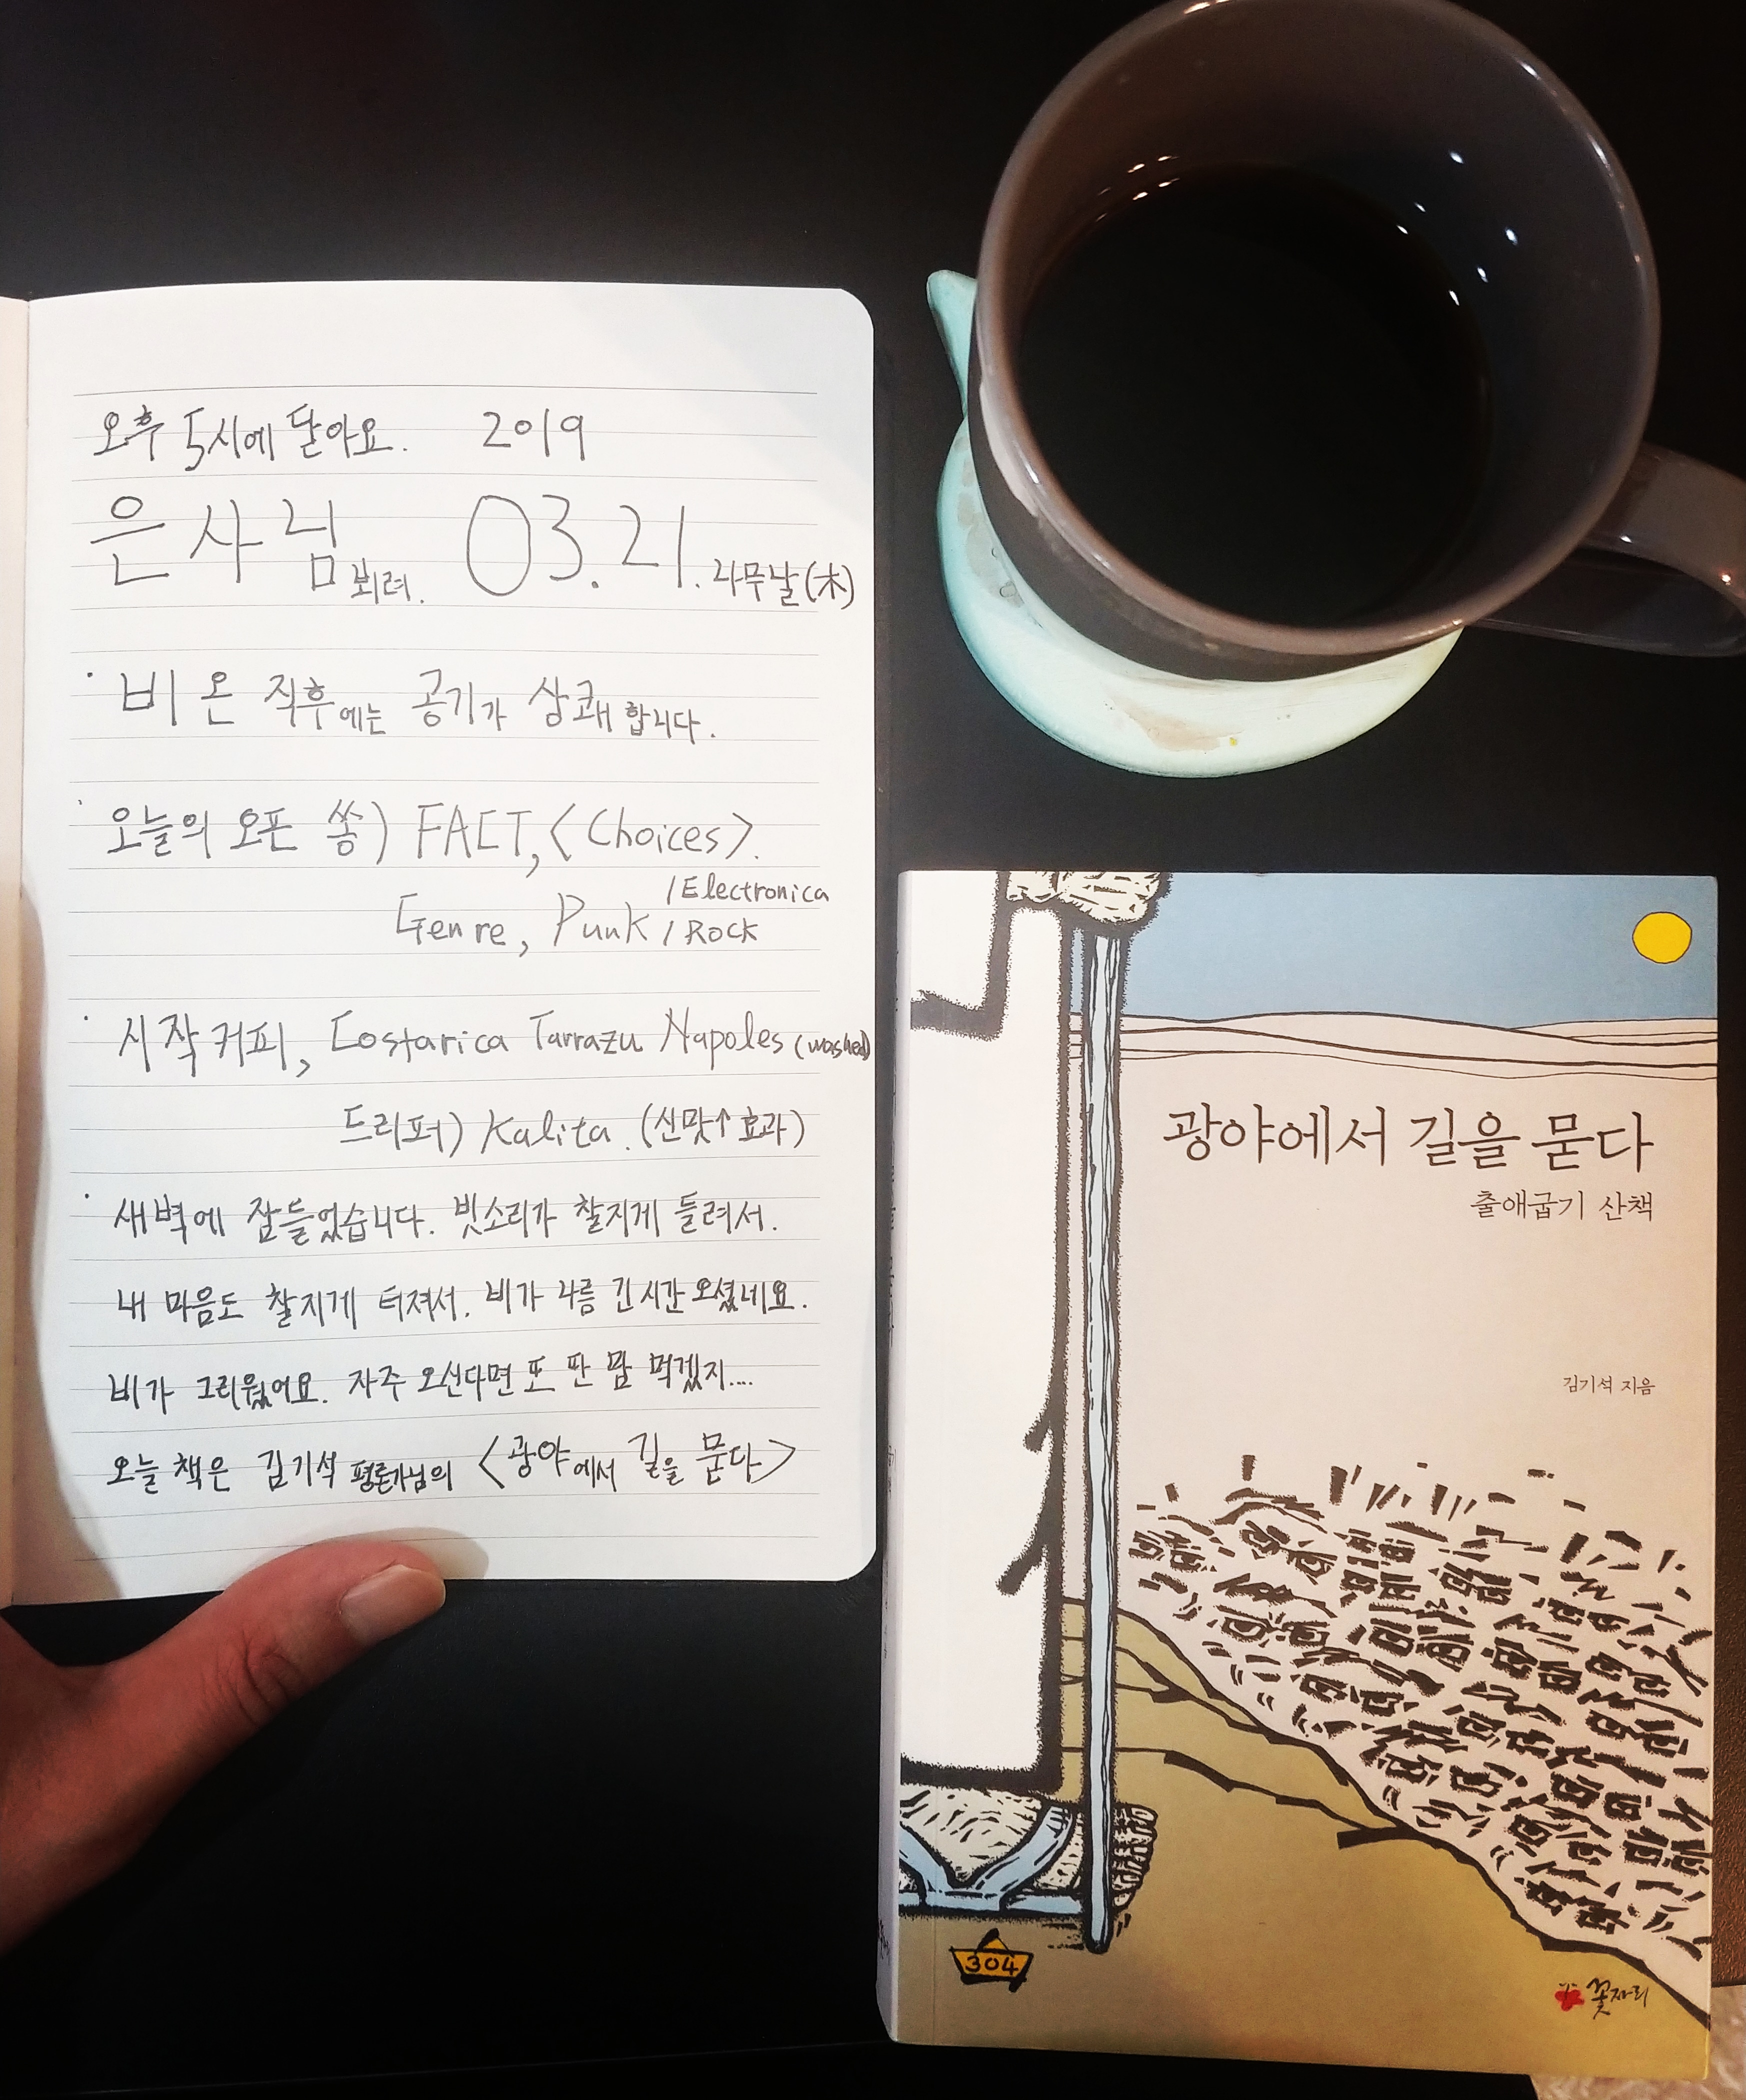 오후 5시에 닫아요. 2019
은사님 뵈려. 03.21. 나무날(木)
· 비 온 직후에는 공기가 상쾌합니다.
· 오늘의 오픈 쏭) FACT, <Choices>.
Genre, Punk /Electronica
/ROCK
· 시작커피, Costarica Tarrazu Napoles (washed)
드리퍼) Kalita. (신맛↑효과)
· 새벽에 잠들었습니다. 빗소리가 찰지게 들려서.
내 마음도 찰지게 터져서. 비가 나름 긴 시간 오셨네요.
비가 그리웠어요. 자주 오신다면 또 딴 맘 먹겠지....
오늘 책은 김기석 평론가님의 <광야에서 길을 묻다>
광야에서 길을 묻다
출애굽기 산책
김기석 지음
304
꽃자리